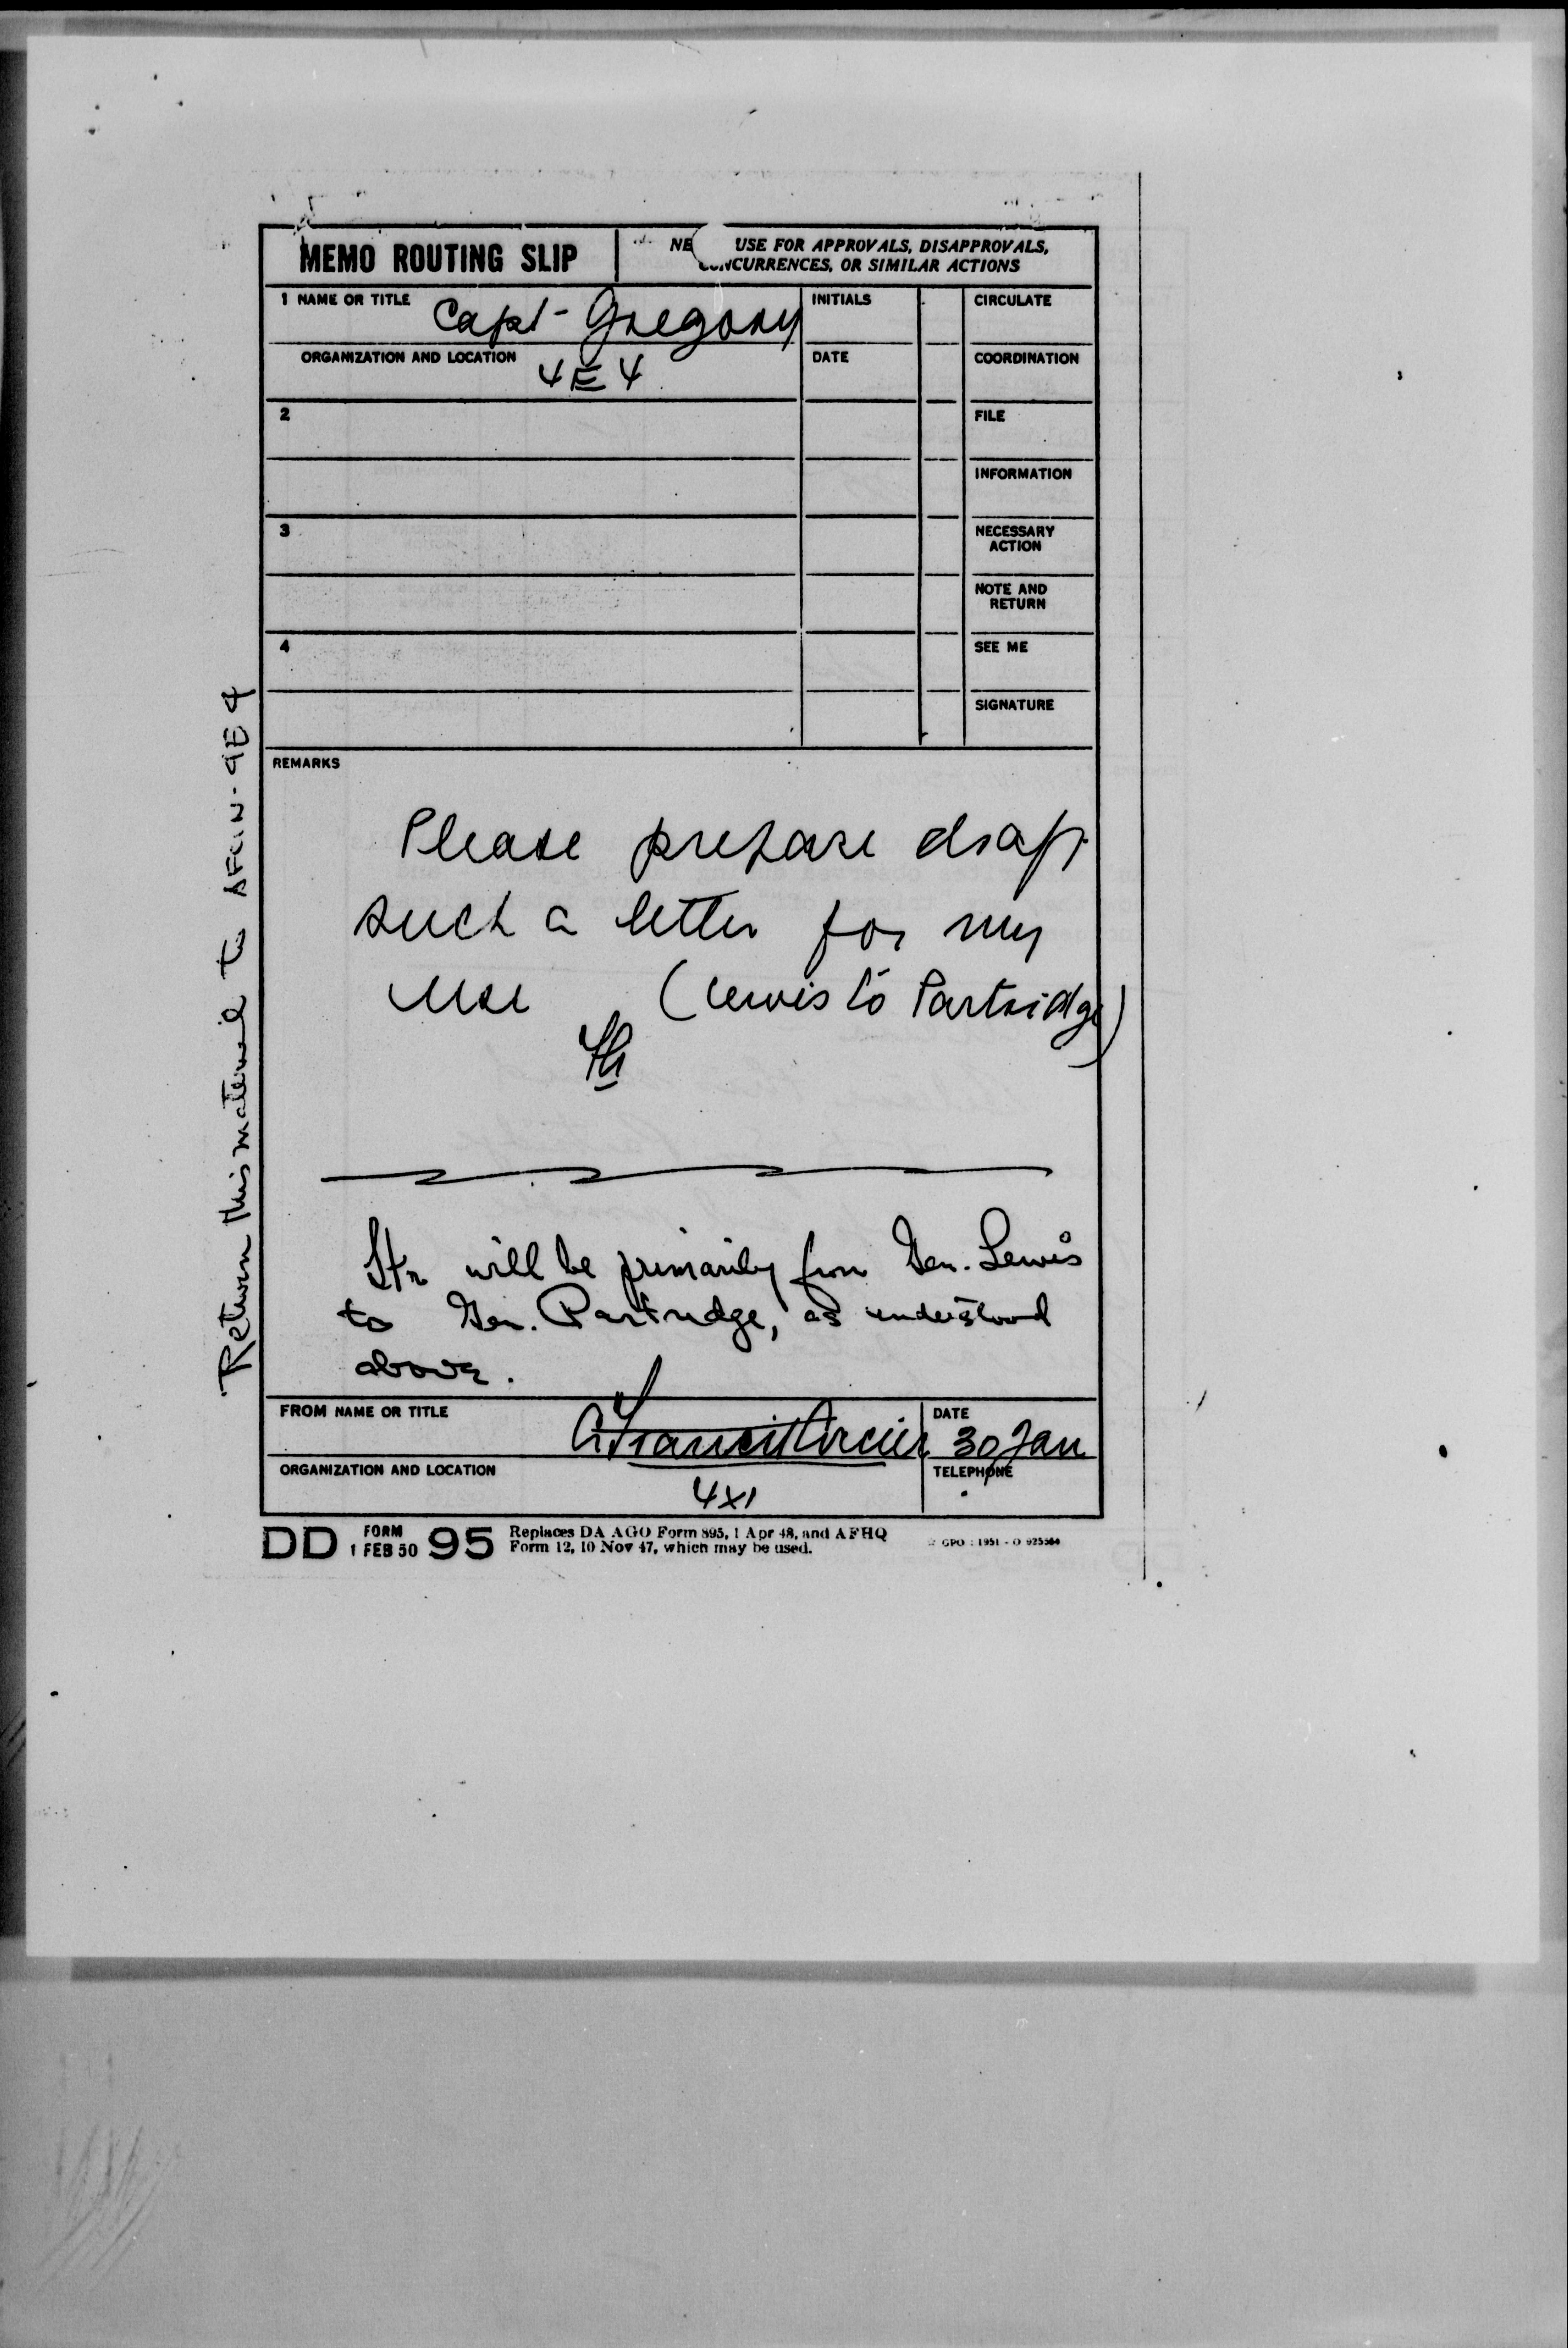 MEMO ROUTING SLIP
NE USE FOR APPROVALS, DISAPPROVALS,
CONCURRENCES, OR SIMILAR ACTIONS
1 NAME OR TITLE Capt- Gregory
INITIALS
CIRCULATE
ORGANIZATION AND LOCATION 4E4
DATE
COORDINATION
2
FILE
INFORMATION
3
NECESSARY
ACTION
NOTE AND
RETURN
4
SEE ME
SIGNATURE
REMARKS
Please prepare draft
such a letter for my
use (Lewis to Partridge)
Ltr will be primarily from Gen. Lewis
to Gen. Partridge, as understood
above.
Return this material to AFCIN-4E4
FROM NAME OR TITLE
DATE
30 Jan
ORGANIZATION AND LOCATION
4X1
TELEPHONE
DD FORM 1 FEB 50 95
Replaces DA AGO Form 895, 1 Apr 48, and AFHQ
Form 12, 10 Nov 47, which may be used.
GPO : 1951 - O